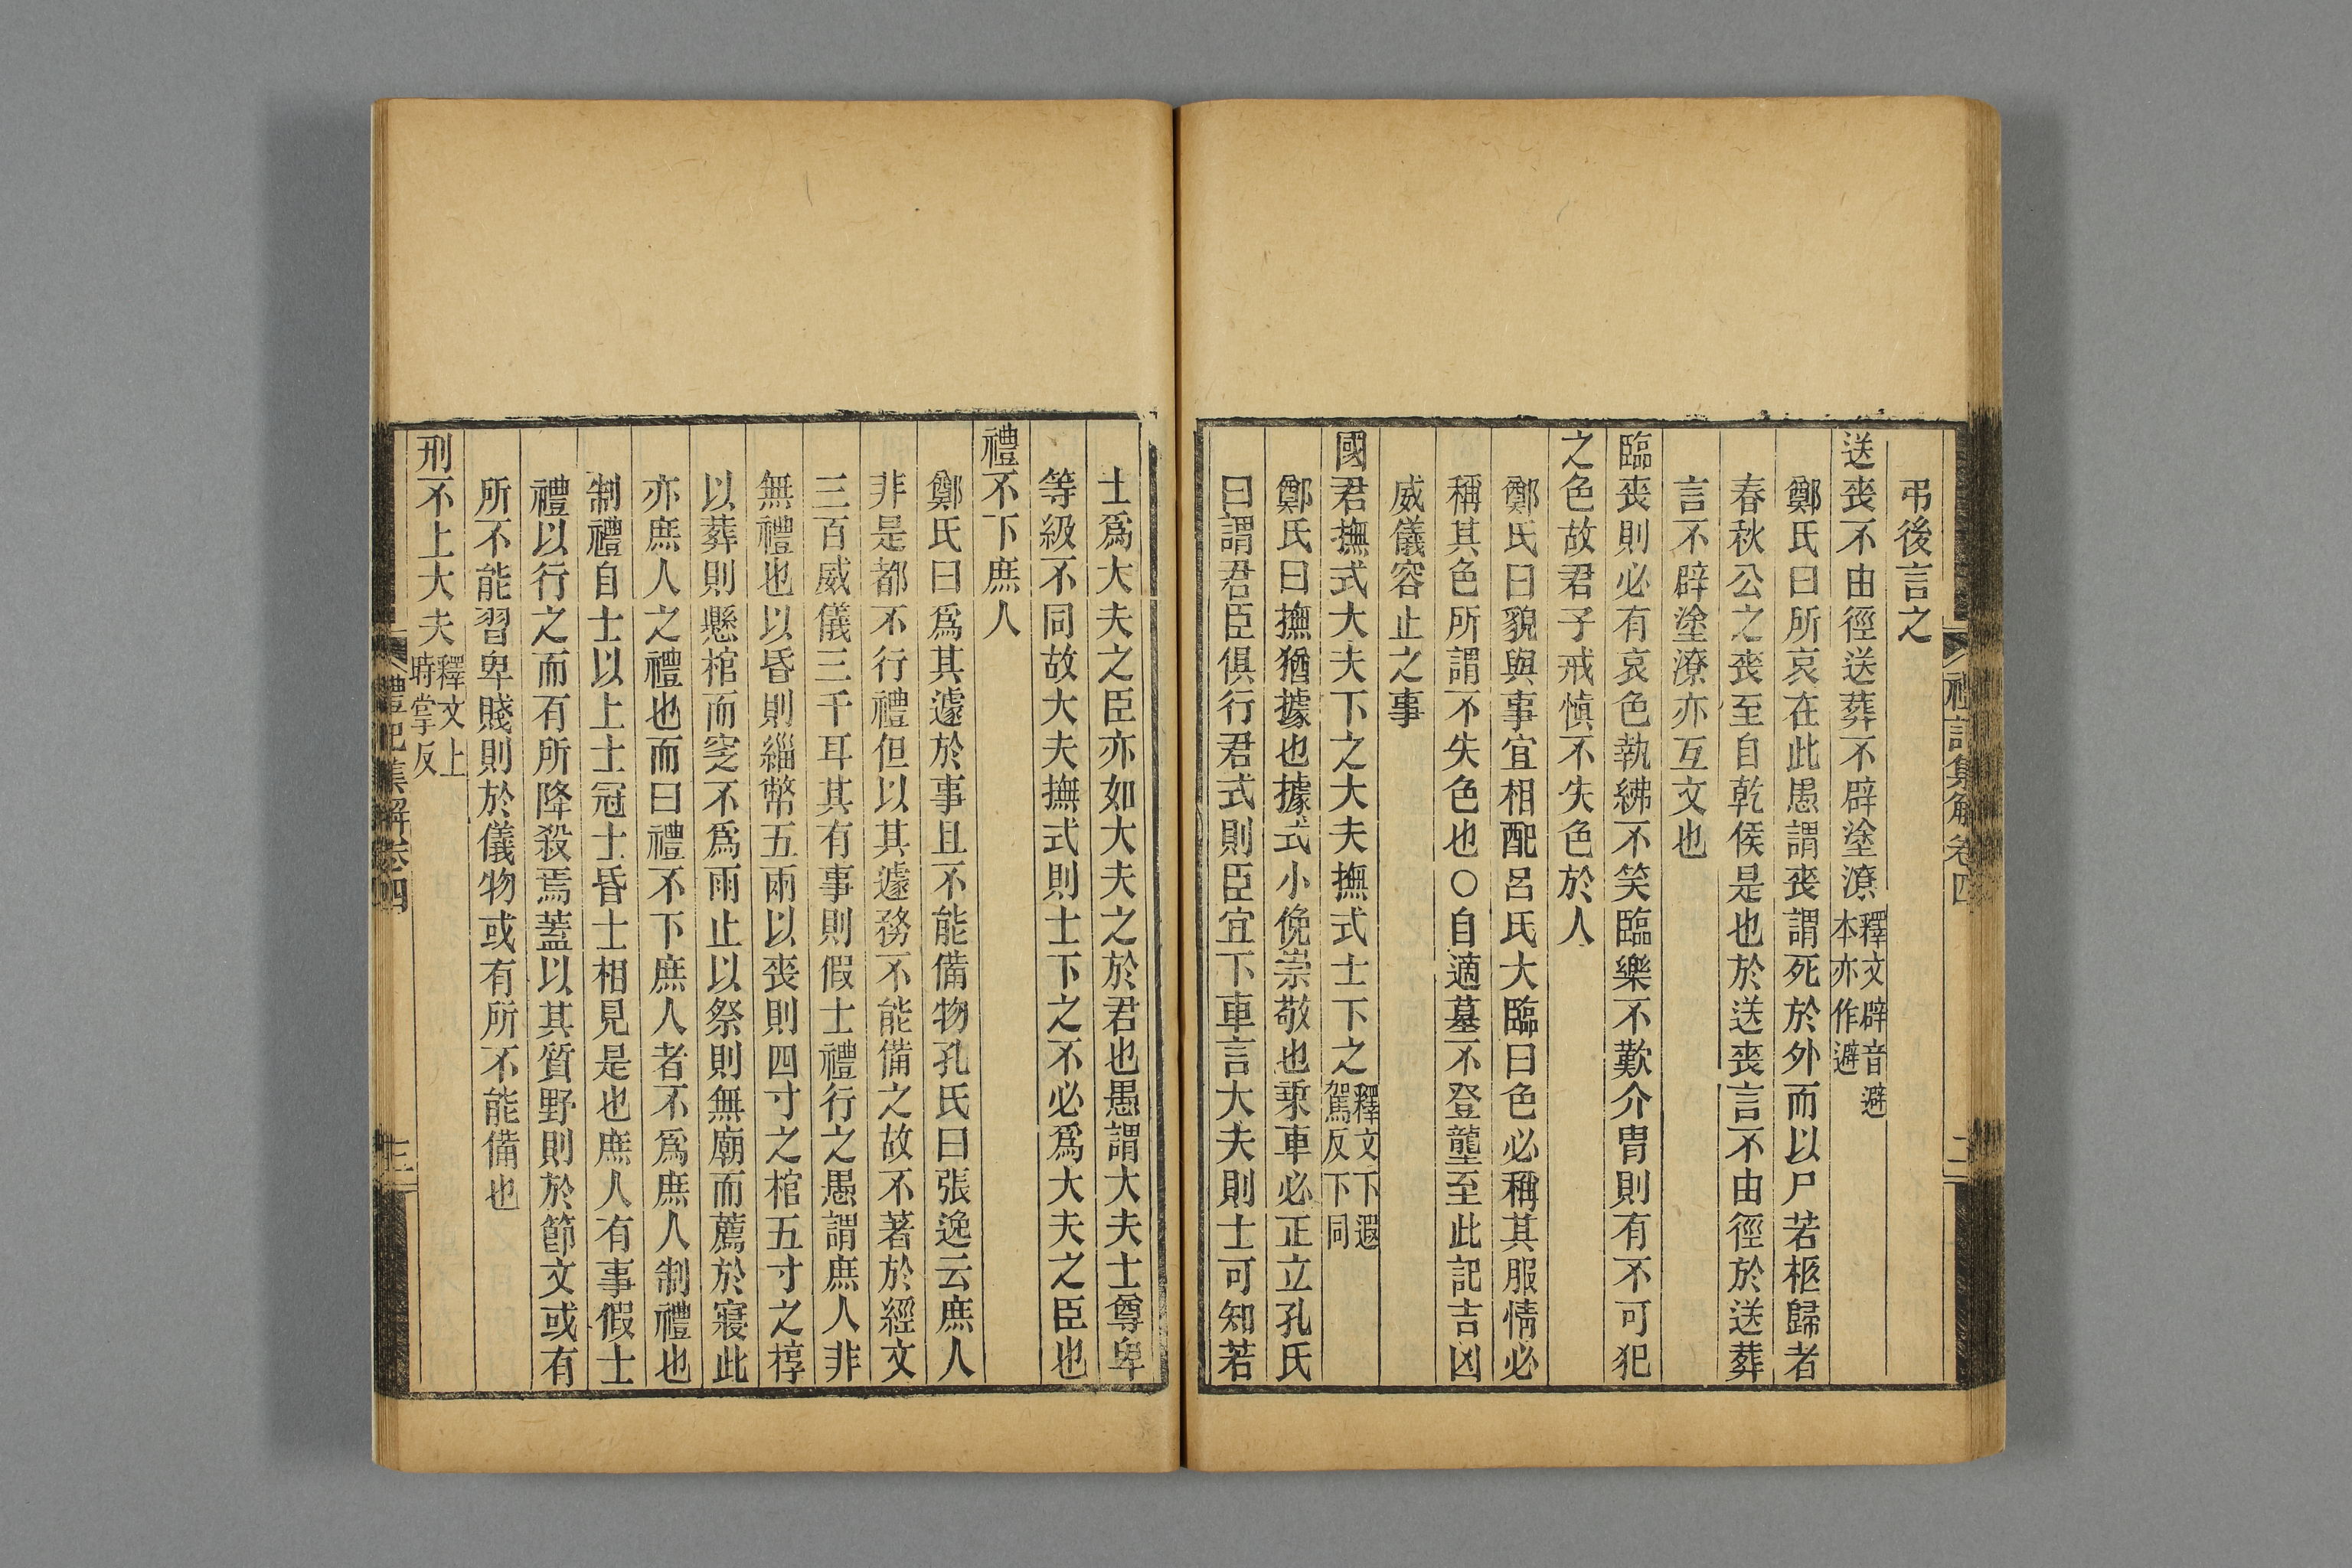 禮記集解卷四
二
弔後言之
送喪不由徑送葬不辟塗潦釋文辟音避本亦作避
鄭氏曰所哀在此愚謂喪謂死於外而以尸若柩歸者
春秋公之喪至自乾侯是也於送喪言不由徑於送葬
言不辟塗潦亦互文也
臨喪則必有哀色執紼不笑臨樂不歎介冑則有不可犯
之色故君子戒慎不失色於人
鄭氏曰貌與事宜相配呂氏大臨曰色必稱其服情必
稱其色所謂不失色也○自適墓不登壟至此記吉凶
威儀容止之事
國君撫式大夫下之大夫撫式士下之釋文下遐駕反下同
鄭氏曰撫猶據也據式小俛崇敬也乘車必正立孔氏
曰謂君臣俱行君式則臣宜下車言大夫則士可知若
士爲大夫之臣亦如大夫之於君也愚謂大夫士尊卑
等級不同故大夫撫式則士下之不必爲大夫之臣也
禮不下庶人
鄭氏曰爲其遽於事且不能備物孔氏曰張逸云庶人
非是都不行禮但以其遽務不能備之故不著於經文
三百威儀三千耳其有事則假士禮行之愚謂庶人非
無禮也以昏則緇幣五兩以喪則四寸之棺五寸之椁
以葬則懸棺而窆不爲雨止以祭則無廟而薦於寢此
亦庶人之禮也而曰禮不下庶人者不爲庶人制禮也
制禮自士以上士冠士昏士相見是也庶人有事假士
禮以行之而有所降殺焉蓋以其質野則於節文或有
所不能習卑賤則於儀物或有所不能備也
刑不上大夫釋文上時掌反
禮記集解卷四
三